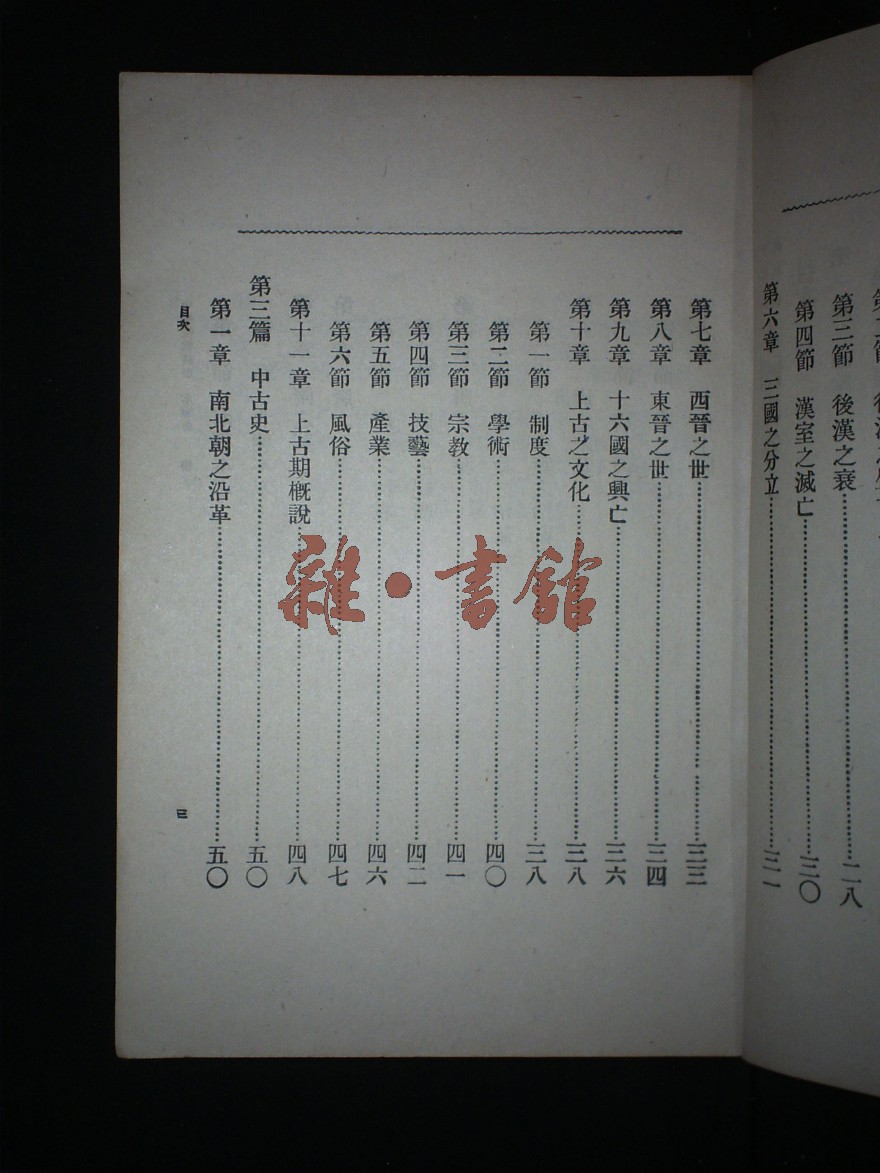 第三節　後漢之衰……二八
第四節　漢室之滅亡……三〇
第六章　三國之分立……三一
第七章　西晉之世……三三
第八章　東晉之世……三四
第九章　十六國之興亡……三六
第十章　上古之文化……三八
第一節　制度……三八
第二節　學術……四〇
第三節　宗教……四一
第四節　技藝……四二
第五節　產業……四六
第六節　風俗……四七
第十一章　上古期概說……四八
第三篇　中古史……五〇
第一章　南北朝之沿革……五〇
目次
三
雜·書館